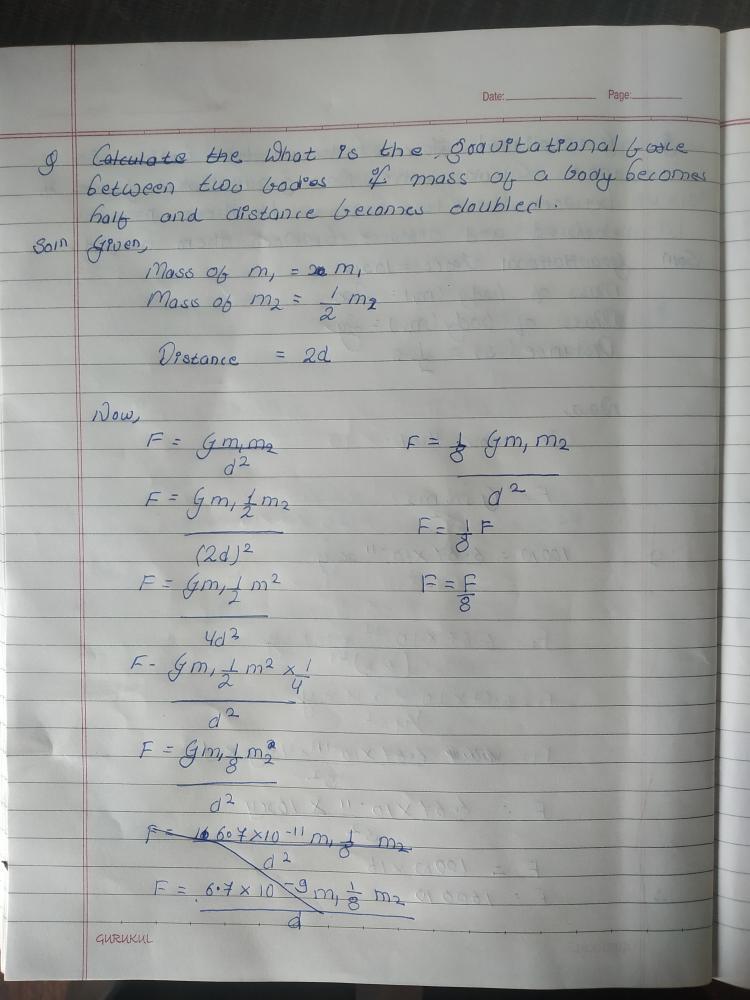 Date: Page:
Q Calculate the What is the gravitational force
between two bodies if mass of a body becomes
half and distance becomes doubled.
Soln Given,
Mass of m₁ = m₁
Mass of m₂ = 1/2 m₂
Distance = 2d
Now,
F = Gm₁m₂/d²
F = Gm₁ 1/2 m₂/(2d)²
F = Gm₁ 1/2 m²/4d²
F - Gm₁ 1/2 m² × 1/4/d²
F = Gm₁ 1/8 m₂/d²
F = 6.07 × 10⁻¹¹ m₁ 1/8 m₂/d²
F = 6.7 × 10⁻⁹ m₁ 1/8 m₂/d
F = 1/8 Gm₁m₂/d²
F = 1/8 F
F = F/8
GURUKUL